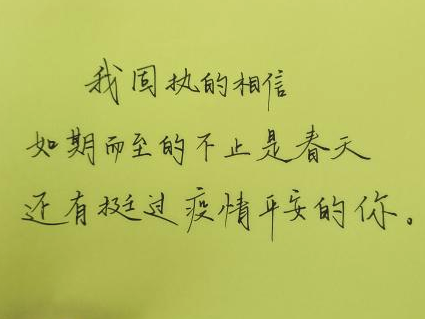 我固执的相信
如期而至的不止是春天
还有挺过疫情平安的你。